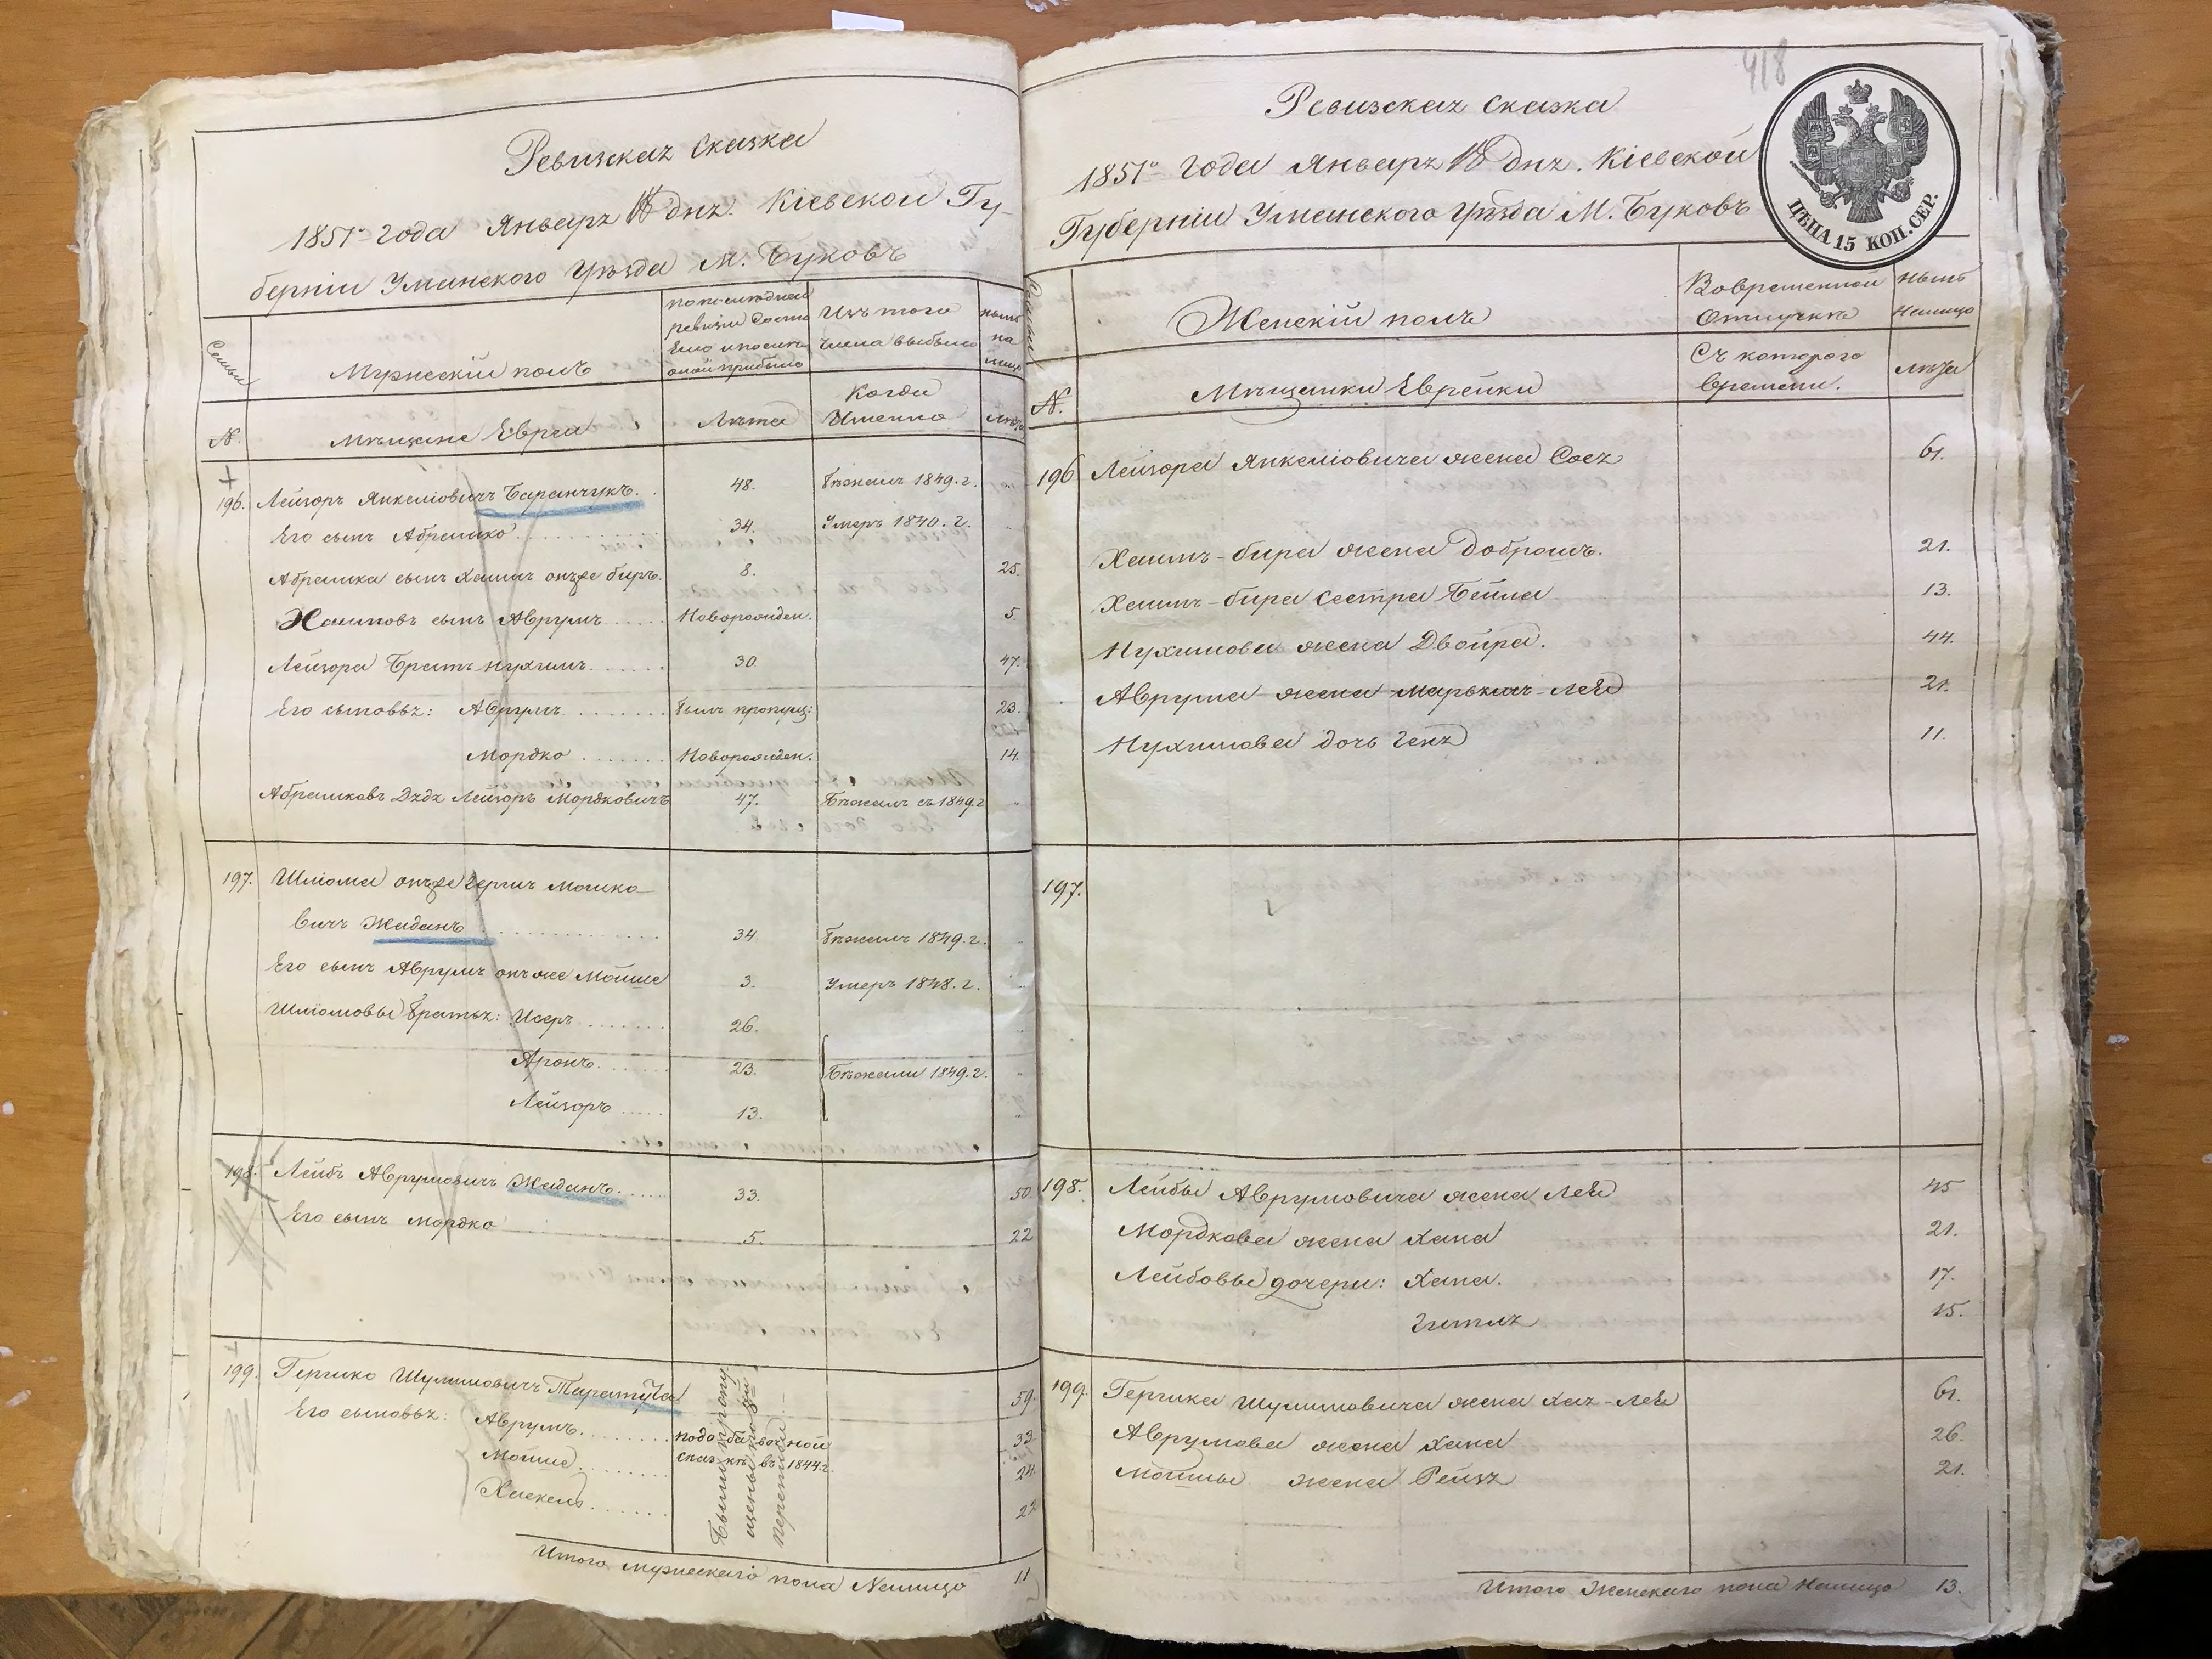 Ревизская сказка
1851го года Января 18 дня. Кіевской Гу-
берніи Уманскаго Уѣзда М. Буковъ
Семьи
Мужескій полъ
По последней
ревизіи состо
яло и после
оной прибыло
Изъ того
числа выбыло
Нынѣ
на
лицо
№.
Мѣщане Евреи
Лѣта
Когда
Именно
Лѣта
196. Лейзоръ Янкеліовичъ Баранчукъ. 48. Бѣжалъ 1849. г.
Его сынъ Абрамко 34. Умеръ 1840. г.
Абрамка сынъ Хаимъ онъ же биръ. 8. 25.
Хаимовъ сынъ Аврумъ Новорожден. 5.
Лейзора Братъ Нухимъ 30. 47.
Его сыновья: Аврумъ Былъ пропущ: 23.
Мордко Новорожден. 14.
Абрамковъ Дядя Лейзоръ Мордковичъ 47. Бѣжалъ съ 1849. г
197. Шліома онъ же Гершъ Мошко-
вичъ Жаданъ 34. Бѣжалъ 1849. г.
Его сынъ Аврумъ онъ же Мойше 3. Умеръ 1848. г.
Шліомовы братья: Исеръ 26.
Аронъ 23. Бѣжали 1849. г.
Лейзоръ 13.
198. Лейбъ Аврумовичъ Жаданъ. 33. 50.
Его сынъ Мордко 5. 22
199. Гершко Шулимовичъ Таратута 59.
Его сыновья: Аврумъ. 33
Мойше 24.
Хаскель. 22
Были пропу
щены по 8й
переписи
подо ба вочной
сказкѣ въ 1844 г.
Итого мужескаго пола налицо 11
418
Ревизская сказка
1851го года Января 18 дня. Кіевской
Губерніи Уманскаго Уѣзда М. Буковъ
ЦѢНА 15 КОП. СЕР.
Семьи
Женскій полъ
Во временной
Отлучкѣ
Нынѣ
Налицо
№.
Мѣщанки Еврейки
Съ котораго
времени.
Лѣта
196 Лейзора Янкеліовича жена Сося 61.
Хаимъ-бира жена Доброшъ. 21.
Хаимъ-бира сестра Бейла 13.
Нухимова жена Двойра. 44.
Аврума жена Марьямъ-Лея 21.
Нухимова дочь Геня 11.
197.
198. Лейбы Аврумовича жена Лея 45
Мордкова жена Хана 21.
Лейбовы дочери: Хана. 17.
Гитля 15.
199. Гершка Шулимовича жена Хая-Лея 61.
Аврумова жена Хана 26.
Мойшы жена Рейзя 21.
Итого Женскаго пола Налицо 13.